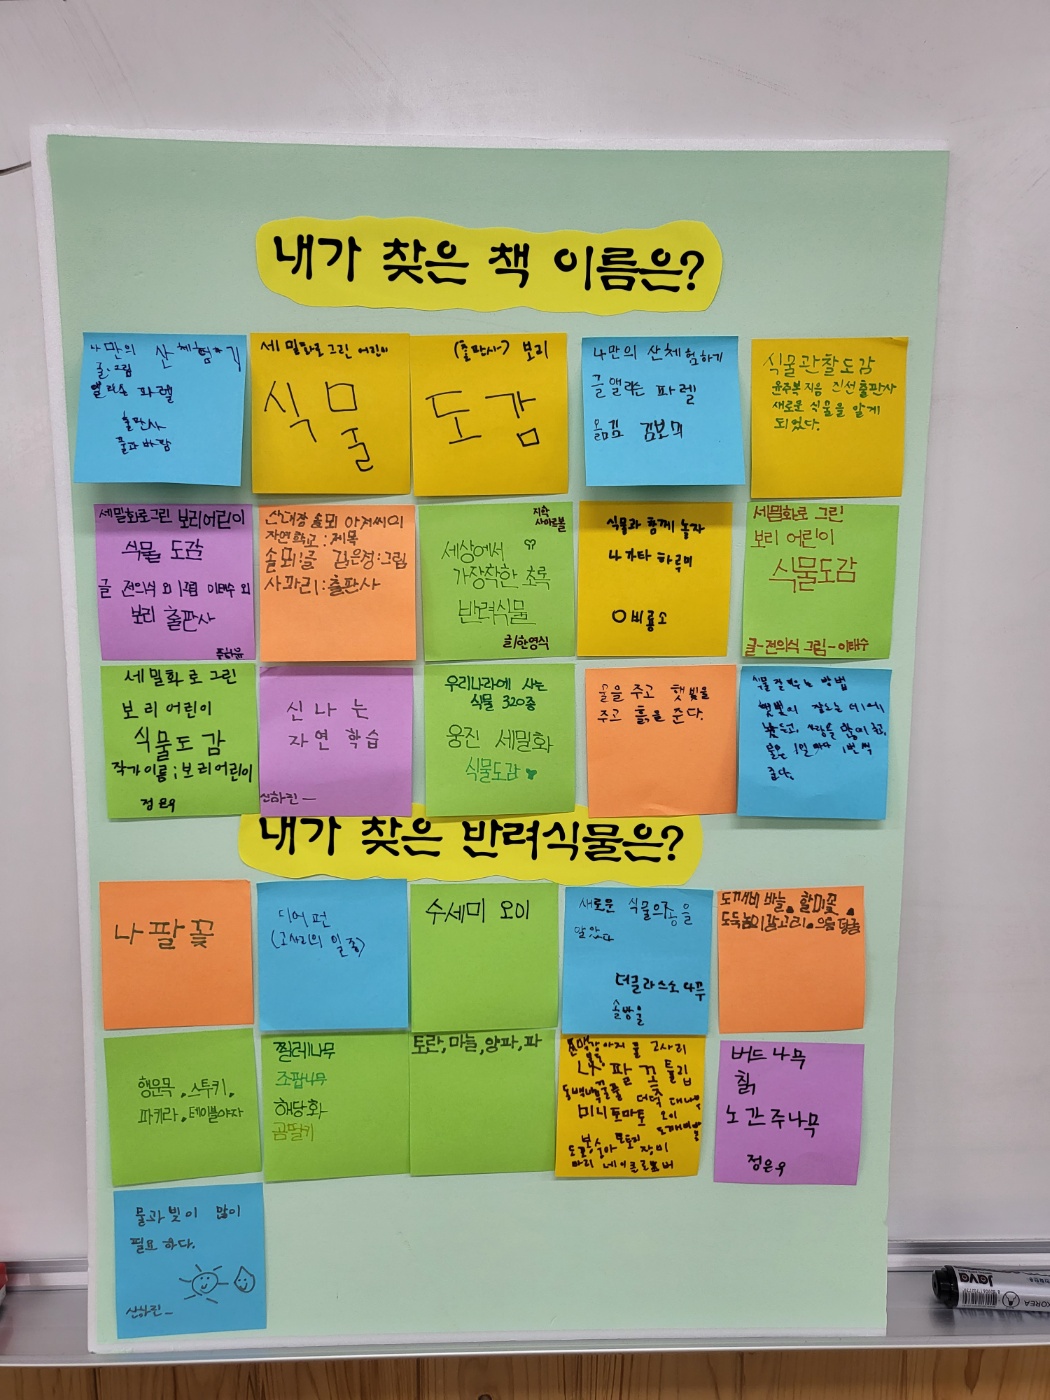 내가 찾은 책 이름은?
나만의 산체험하기
글.그림
파렐
출판사
풀과바람
세밀화로그린 어린이
식물
(출판사) 보리
도감
나만의 산체험하기
글 앨리슨 파렐
옮김 김보미
식물관찰도감
윤주복지음 진선출판사
새로운 식물을 알게
되었다.
세밀화로그린 보리어린이
식물 도감
글 전의식 외 그림 이태수 외
보리 출판사
산대장 솔뫼 아저씨의
자연학교:제목
솔뫼:글 김은경:그림
사파리:출판사
지학
사아르볼
세상에서
가장착한 초록
반려식물
글/한영식
식물과 함께 놀자
나가타 하루미
비룡소
세밀화로 그린
보리 어린이
식물도감
글-전의식 그림-이태수
세밀화로 그린
보리어린이
식물도감
작가이름;보리어린이
정은우
신나는
자연 학습
신하진-
우리나라에 사는
식물 320종
웅진 세밀화
식물도감
물을 주고 햇빛을
주고 흙을 준다.
식물 잘 키우는 방법
햇빛이 잘드는 데에
물은 1일마다 1번씩
준다.
내가 찾은 반려식물은?
나팔꽃
디어펀
(고사리의 일종)
수세미 오이
새로운 식물의종을
알았다
더글라스소나무
솔방울
도깨비 바늘. 할미꽃.
도둑놈의갈고리.으름덩굴
행운목.스투키.
파키라.테이블야자
찔레나무
조팝나무
해당화
곰딸기
토란,마늘,양파,파
고사리
나팔꽃 튤립
더덕
미니토마토 오이
도토리 장미
버드나무
칡
노간주나무
정은우
물과 빛이 많이
필요하다.
신하진-
java
KOREA